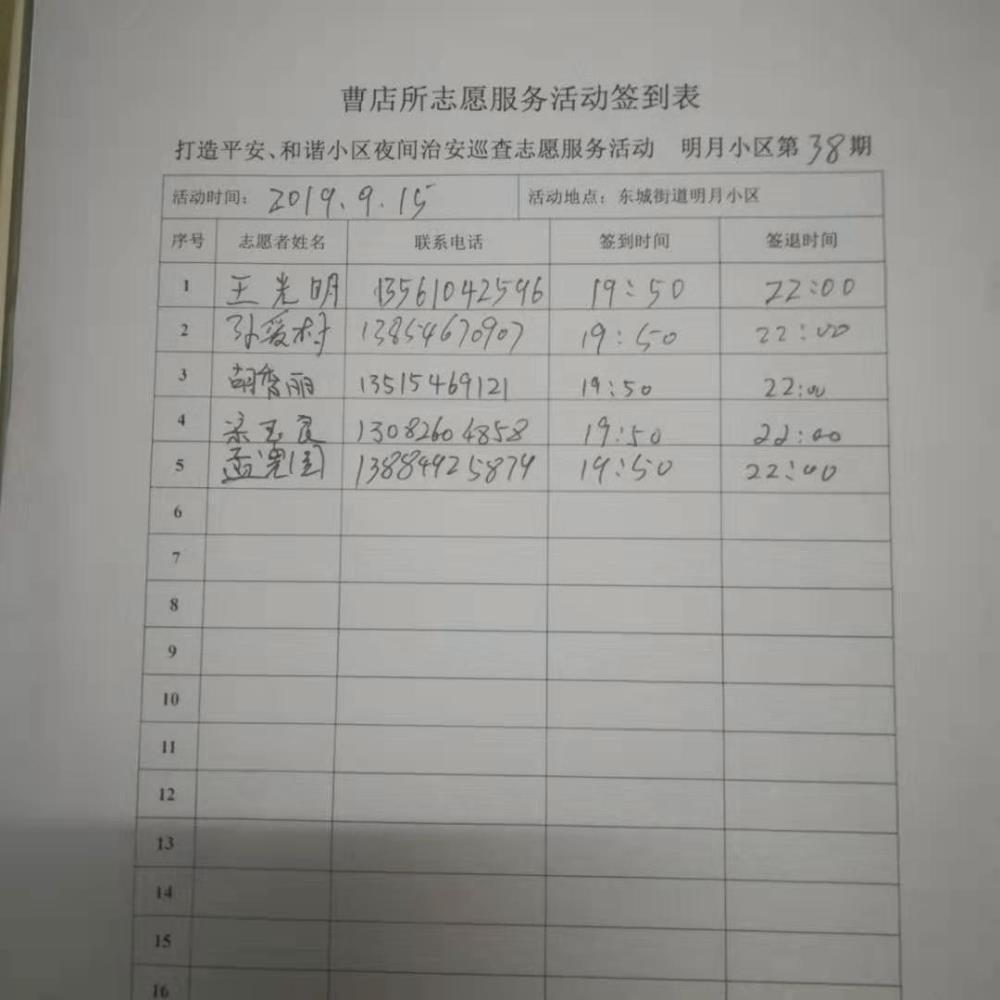 曹店所志愿服务活动签到表
打造平安、和谐小区夜间治安巡查志愿服务活动 明月小区第38期
活动时间: 2019.9.15 活动地点: 东城街道明月小区
序号 志愿者姓名 联系电话 签到时间 签退时间
1 王光明 13561042596 19:50 22:00
2 孙爱村 13854670907 19:50 22:00
3 胡香丽 13515469121 19:50 22:00
4 梁玉良 13082604858 19:50 22:00
5 孟 国 13884925879 19:50 22:00
6
7
8
9
10
11
12
13
14
15
16